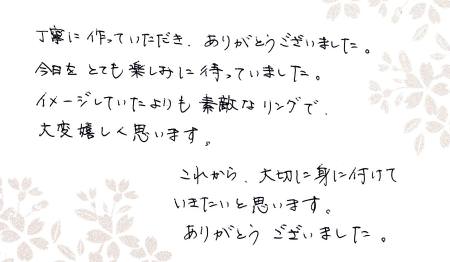 丁寧に作っていただき、ありがとうございました。
今日をとても楽しみに待っていました。
イメージしていたよりも素敵なリングで、
大変嬉しく思います。
これから、大切に身に付けて
いきたいと思います。
ありがとうございました。